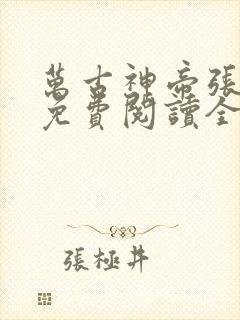 萬古神帝張
免費閱讀全
張極井